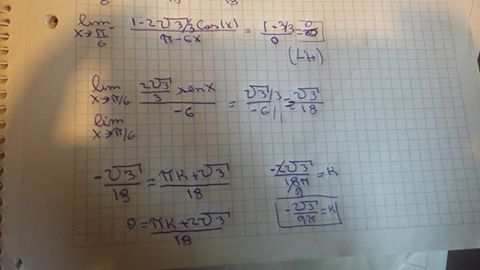 lim x→π/6⁻ (1-2√3/3 cos(x))/(π-6x) = (1-3/3)/0 = 0/0
(L'H)
lim x→π/6 (2√3/3 senx)/(-6) = (√3/3)/(-6/1) = √3/18
lim x→π/6
-√3/18 = (πk+√3)/18 -2√3/18π = k
0 = (πk+2√3)/18 -√3/9π = k